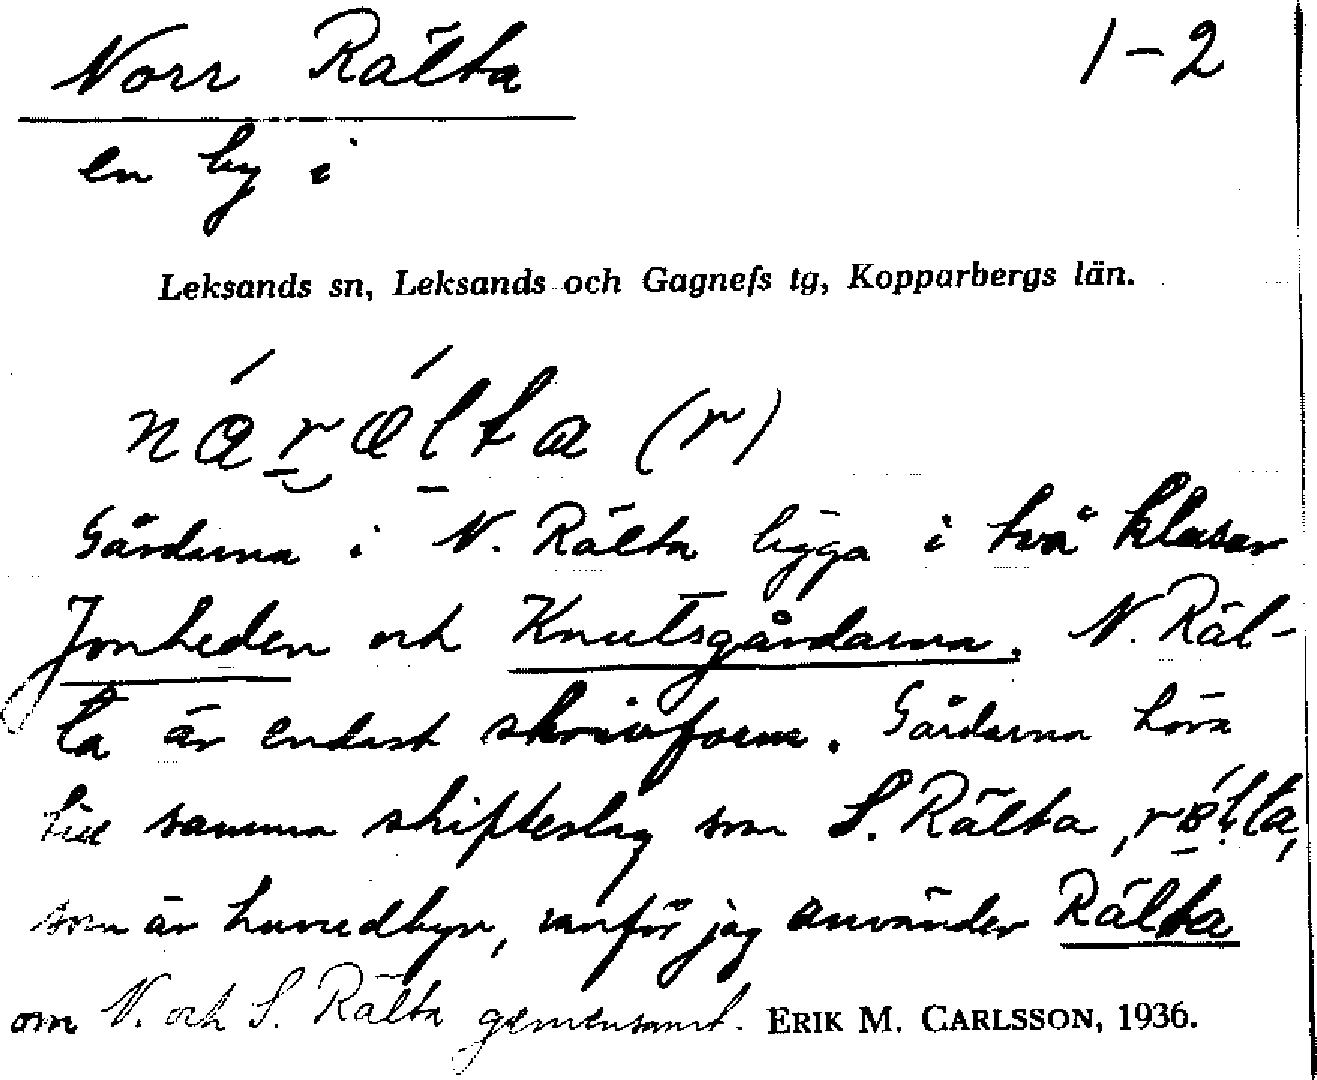 Norr Rälta 1-2
en by i
Leksands sn, Leksands och Gagnefs tg, Kopparbergs län.
(r)
Gårdarna i N. Rälta ligga i två klasar
Jonheden och Knutsgårdarna. N. Räl-
ta är endast skrivform. Gårdarna höra
till samma skifteslag som S. Rälta,
som är huvudbyn, varför jag använder Rälta
om N. och S. Rälta gemensamt. ERIK M. CARLSSON, 1936.